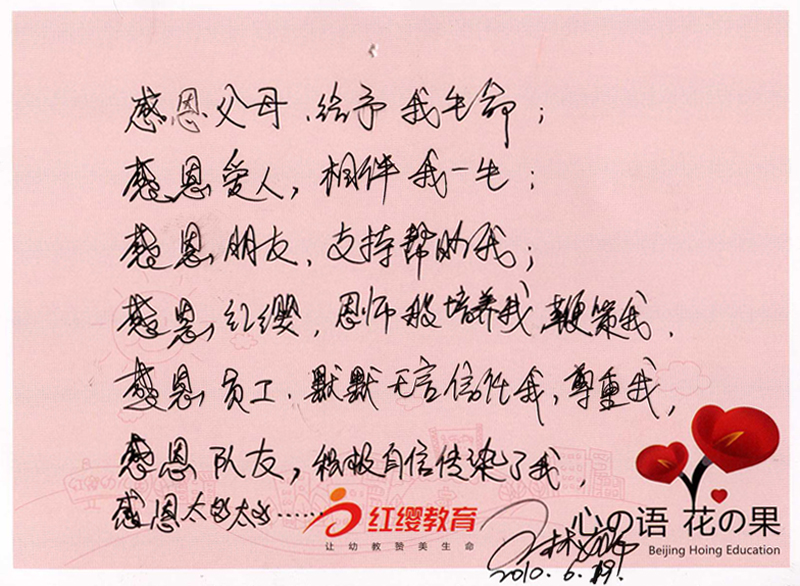 感恩父母、给予我生命；
感恩爱人，相伴我一生；
感恩朋友、支持帮助我；
感恩红缨，恩师般培养我，鞭策我．
感恩员工．默默无言信任我，尊重我，
感恩队友，积极自信传染了我，
感恩太多太多……
红缨教育
让幼教赞美生命
心の语 花の果
Beijing Hoing Education
2010.6.19.